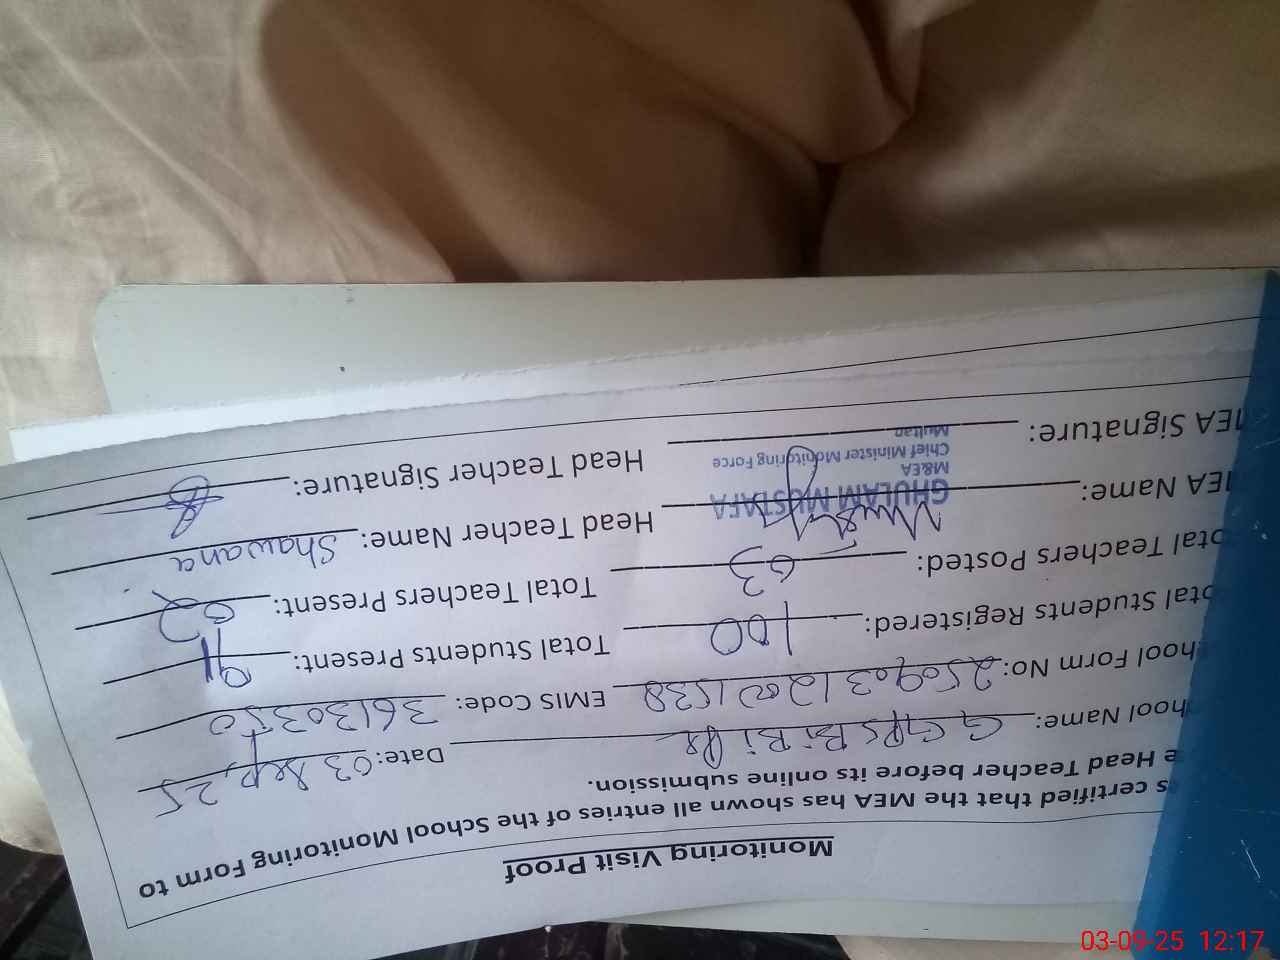 Monitoring Visit Proof
s certified that the MEA has shown all entries of the School Monitoring Form to
e Head Teacher before its online submission.
hool Name: GGPS Bi Bi Date: 03 Sep, 25
hool Form No: 25090312001538 EMIS Code: 36130350
otal Students Registered: 100 Total Students Present: 91
otal Teachers Posted: 03 Total Teachers Present: 02
MEA Name: Head Teacher Name: Shawana
GHULAM MUSTAFA
M&EA
Chief Minister Monitoring Force
Multan
MEA Signature: Head Teacher Signature:
03-09-25 12:17